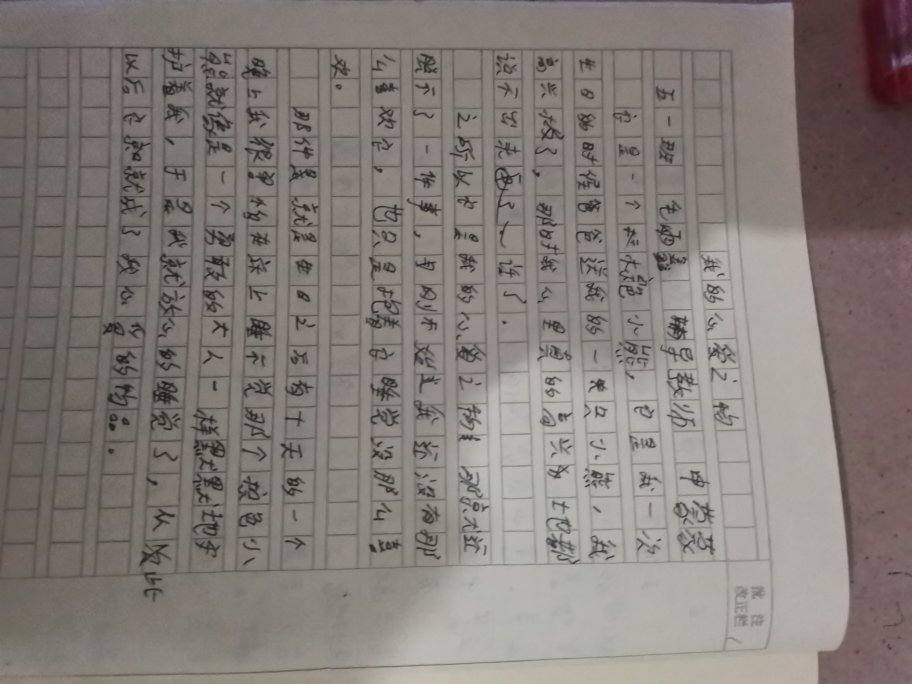 我的心爱之物
五一班 毛雨 辅导教师 申
它是一个棕色小熊，它是我一次
生日的时候爸爸送我的一只小熊，我
高兴极了，那时我心里真的高兴的
说不出来了
之所以它是我的心爱之物
了一件事，刚开始是我还没有那
么喜欢它，也只是抱着它睡觉没那么喜
欢。
那件是就是生日之后有十天的一个
晚上我很害怕在床上睡不觉那个棕色小
熊就像是一个勇敢的大人一样默默地守
护着我，于是我就放心的睡觉了，从此
以后它就成了我心爱的物。
批注
改正栏